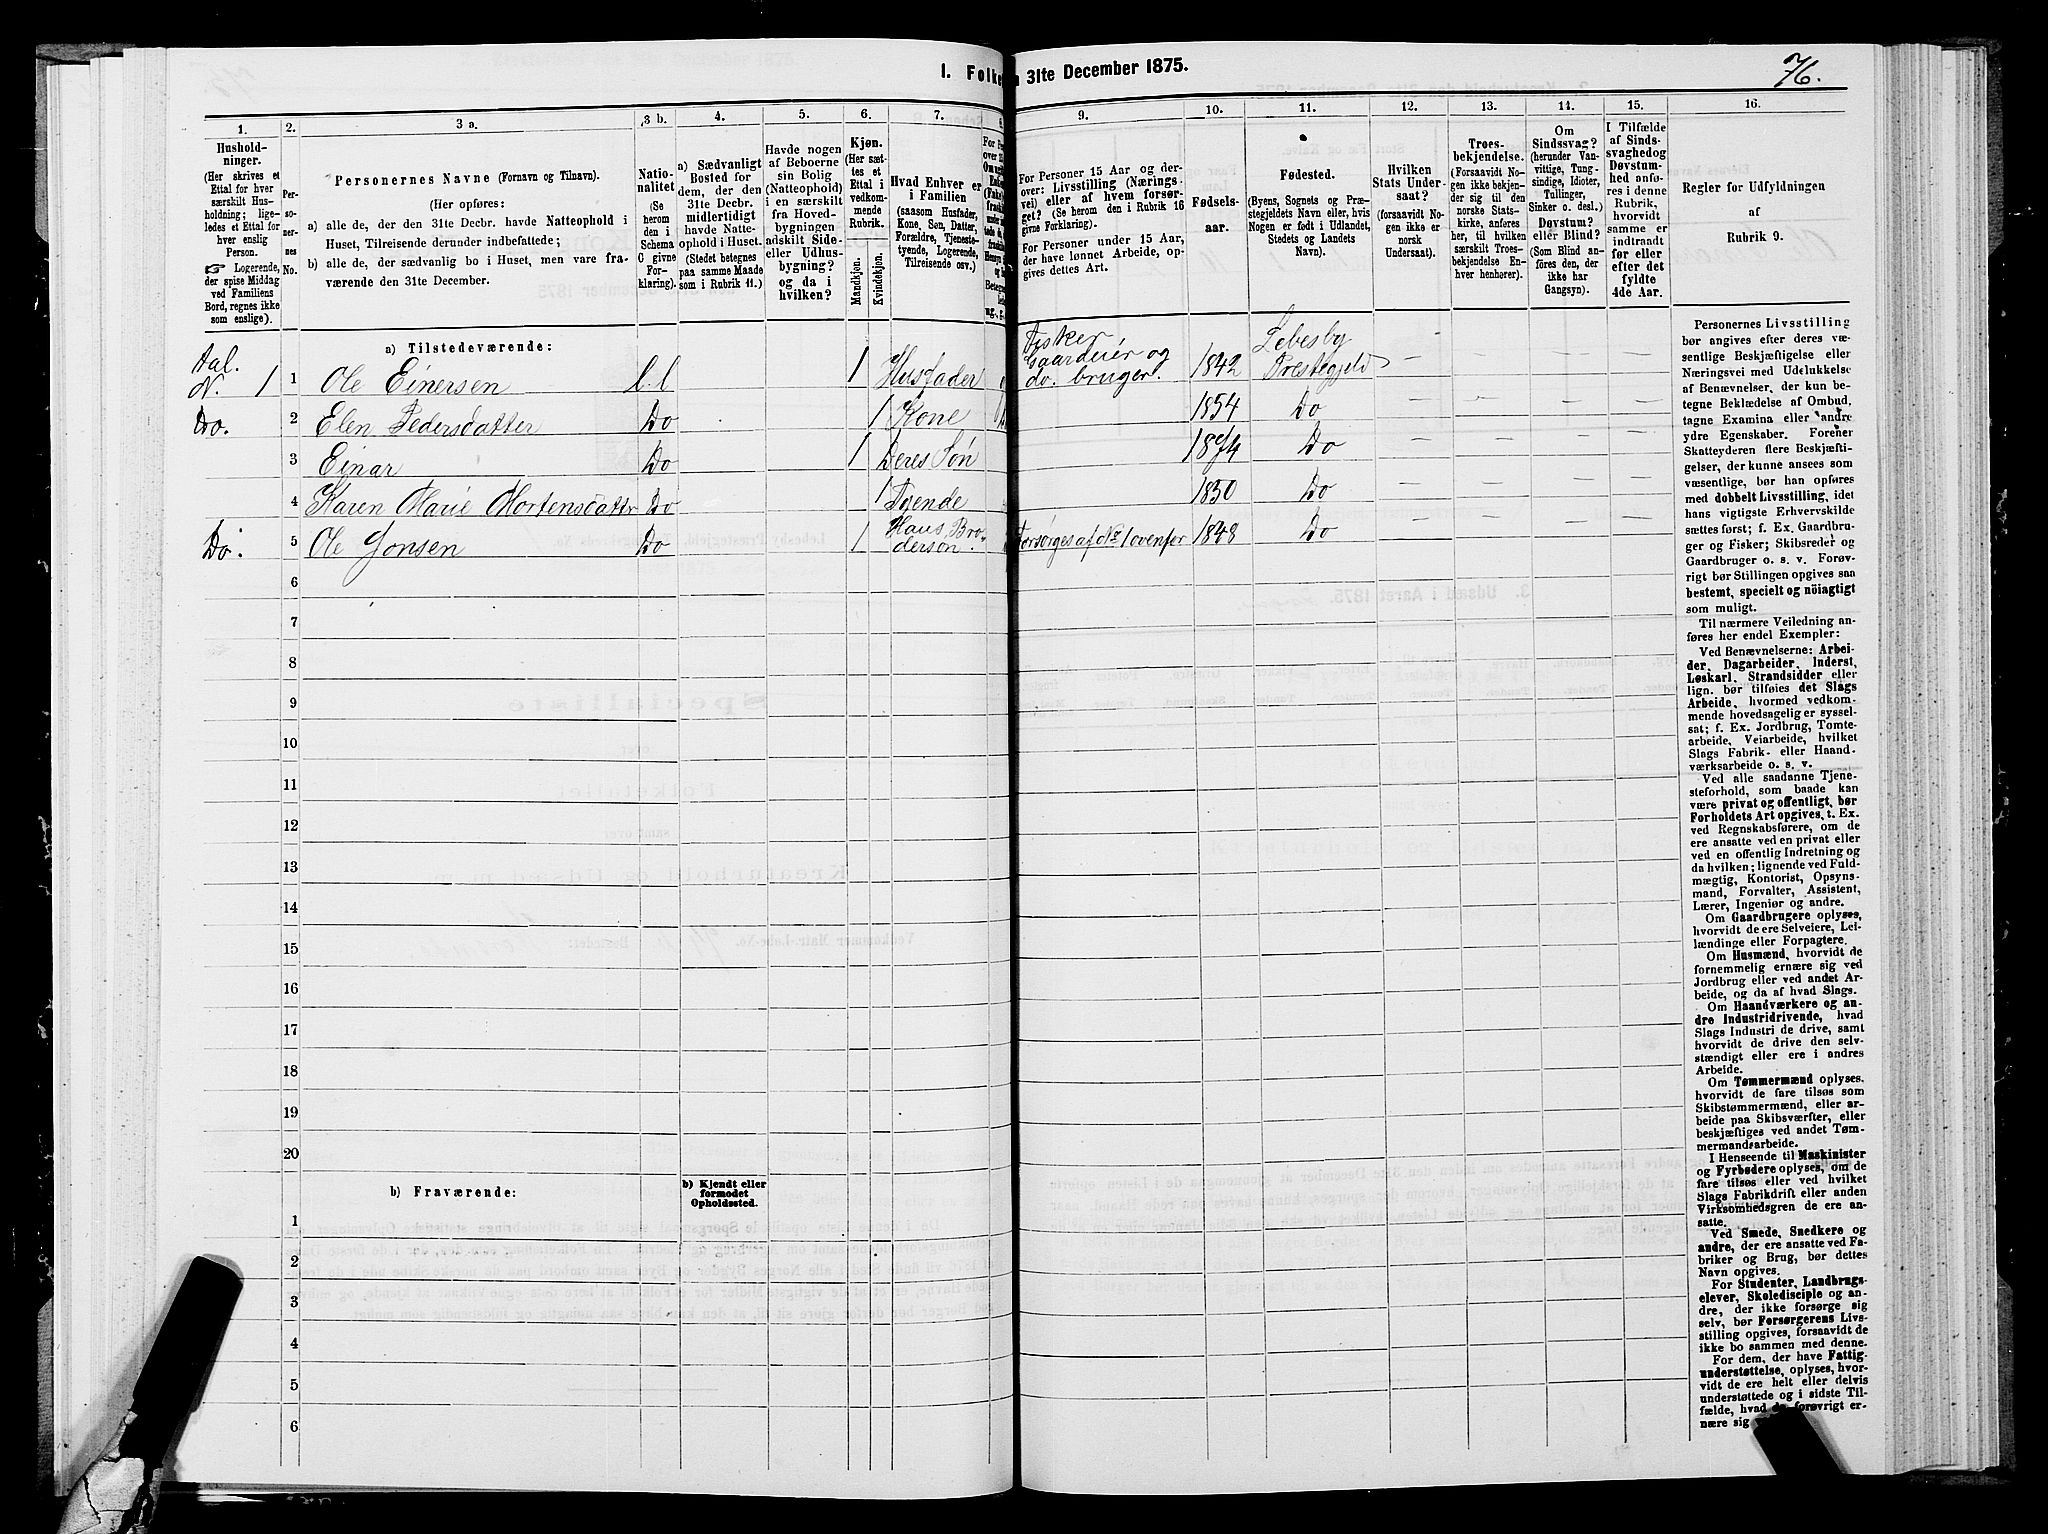 76.
I. Folke
n 31te December 1875.
1. 2. 3 a. 3 b. 4. 5. 6. 7. 8. 9. 10. 11. 12. 13. 14. 15. 16.
Hushold-
ninger.
(Her skrives et
Ettal for hver
særskilt Hus-
holdning; lige-
ledes et Ettal for
hver enslig
Person.
☞ Logerende,
der spise Middag
ved Familiens
Bord, regnes ikke
som enslige).
Per-
sono-
ner-
nes
No.
Personernes Navne (Fornavn og Tilnavn).
(Her opføres:
a) alle de, der den 31te Decbr. havde Natteophold i
Huset, Tilreisende derunder indbefattede;
b) alle de, der sædvanlig bo i Huset, men vare fra-
værende den 31te December.
Natio-
nalitet
(Se
herom
den i
Schema
C givne
For-
klaring).
a) Sædvanligt
Bosted for
dem, der den
31te Decbr.
midlertidigt
havde Natte-
ophold i Huset.
(Stedet betegnes
paa samme Maade
som i Rubrik 11.)
Havde nogen
af Beboerne
sin Bolig
(Natteophold)
i en særskilt
fra Hoved-
bygningen
adskilt Side-
eller Udhus-
bygning?
og da i
hvilken?
Kjøn.
(Her sæt-
tes et
Ettal i
vedkom-
mende
Rubrik.
Mandkjøn.
Kvindekjøn.
Hvad Enhver er
i Familien
(saasom Husfader,
Kone, Søn, Datter,
Forældre, Tjeneste-
tyende, Logerende,
Tilreisende osv.)
For Personer 15 Aar og der-
over: Livsstilling (Nærings-
vei) eller af hvem forsør-
get? (Se herom den i Rubrik 16
givne Forklaring).
For Personer under 15 Aar,
der have lønnet Arbeide, op-
gives dettes Art.
Fødsels-
aar.
Fødested.
(Byens, Sognets og Præ-
stegjeldets Navn eller, hvis
Nogen er født i Udlandet,
Stedets og Landets
Navn).
Hvilken
Stats Under-
saat?
(forsaavidt No-
gen ikke er
norsk
Undersaat).
Troes-
bekjendelse.
(Forsaavidt No-
gen ikke bekjen-
der sig til den
norske Stats-
kirke, anføres
her, til hvilken
særskilt Troes-
bekjendelse En-
hver henhører).
Om
Sindssvag?
(herunder Van-
vittige, Tung-
sindige, Idioter,
Tullinger,
Sinker o. desl.)
Døvstum?
eller Blind?
(Som Blind an-
føres den, der
ikke har
Gangsyn).
I Tilfælde
af Sinds-
svaghedog
Døvstum-
hed anfø-
res i denne
Rubrik,
hvorvidt
samme er
indtraadt
før eller
efter det
fyldte
4de Aar.
Regler for Udfyldningen
af
Rubrik 9.
a) Tilstedeværende:
Aal.
N. 1 1 Ole Einersen l.l 1 Husfader Fisker Gaardeier og do. bruger. 1842 Lebesby Prestegjeld — — — —
Do. 2 Elen Pedersdatter Do 1 Kone 1854 Do — — — —
3 Einar Do 1 Deres Søn 1874 Do — — — —
4 Karen Marie Mortensdatter Do 1 Tyende 1850 Do — — — —
Do. 5 Ole Jonsen Do 1 Hans Bro- derson. Forsørges af No 1 ovenfor 1848 Do — — — —
6
7
8
9
10
11
12
13
14
15
16
17
18
19
20
b) Fraværende:
b) Kjendt eller
formodet
Opholdssted.
1
2
3
4
5
6
Personernes Livsstilling
bør angives efter deres væ-
sentlige Beskjæftigelse eller
Næringsvei med Udelukkelse
af Benævnelser, der kun be-
tegne Beklædelse af Ombud,
tagne Examina eller andre
ydre Egenskaber. Forener
Skatteyderen flere Beskjæfti-
gelser, der kunne ansees som
væsentlige, bør han opføres
med dobbelt Livsstilling, idet
hans vigtigste Erhvervskilde
sættes først; f. Ex. Gaardbru-
ger og Fisker; Skibsreder og
Gaardbruger o. s. v. Forøv-
rigt bør Stillingen opgives saa
bestemt, specielt og nöiagtigt
som muligt.
Til nærmere Veiledning an-
føres her endel Exempler:
Ved Benævnelserne: Arbei-
der, Dagarbeider, Inderst,
Løskarl, Strandsidder eller
lign. bør tilføies det Slags
Arbeide, hvormed vedkom-
mende hovedsagelig er syssel-
sat; f. Ex. Jordbrug, Tomte-
arbeide, Veiarbeide, hvilket
Slags Fabrik- eller Haand-
værksarbeide o. s. v.
Ved alle saadanne Tjene-
steforhold, som baade kan
være privat og offentligt, bør
Forholdets Art opgives, t. Ex.
ved Regnskabsførere, om de
ere ansatte ved en privat eller
ved en offentlig Indretning og
da hvilken; lignende ved Fuld-
mægtig, Kontorist, Opsyns-
mand, Forvalter, Assistent,
Lærer, Ingeniør og andre.
Om Gaardbrugere oplyses,
hvorvidt de ere Selveiere, Lei-
lændinge eller Forpagtere.
Om Husmænd, hvorvidt de
fornemmelig ernære sig ved
Jordbrug eller ved andet Ar-
beide, og da af hvad Slags.
Om Haandværkere og an-
dre Industridrivende, hvad
Slags Industri de drive, samt
hvorvidt de drive den selv-
stændigt eller ere i andres
Arbeide.
Om Tømmermænd oplyses,
hvorvidt de fare tilsøs som
Skibstømmermænd, eller ar-
beide paa Skibsværfter, eller
beskjæftiges ved andet Tøm-
mermandsarbeide.
I Henseende til Maskinister
og Fyrbødere oplyses, om de
fare tilsøs eller ved hvilket
Slags Fabrikdrift eller anden
Virksomhedsgren de ere an-
satte.
Ved Smede, Snedkere og
andre, der ere ansatte ved Fa-
briker og Brug, bør dettes
Navn opgives.
For Studenter, Landbrugs-
elever, Skoledisciple og an-
dre, der ikke forsørge sig
selv, bør Forsørgerens Livs-
stilling opgives, forsaavidt de
ikke bo sammen med denne.
For dem, der have Fattig-
understøttelse, oplyses, hvor-
vidt de ere helt eller delvis
understøttede og i sidste Til-
fælde, hvad de forøvrigt er-
nære sig